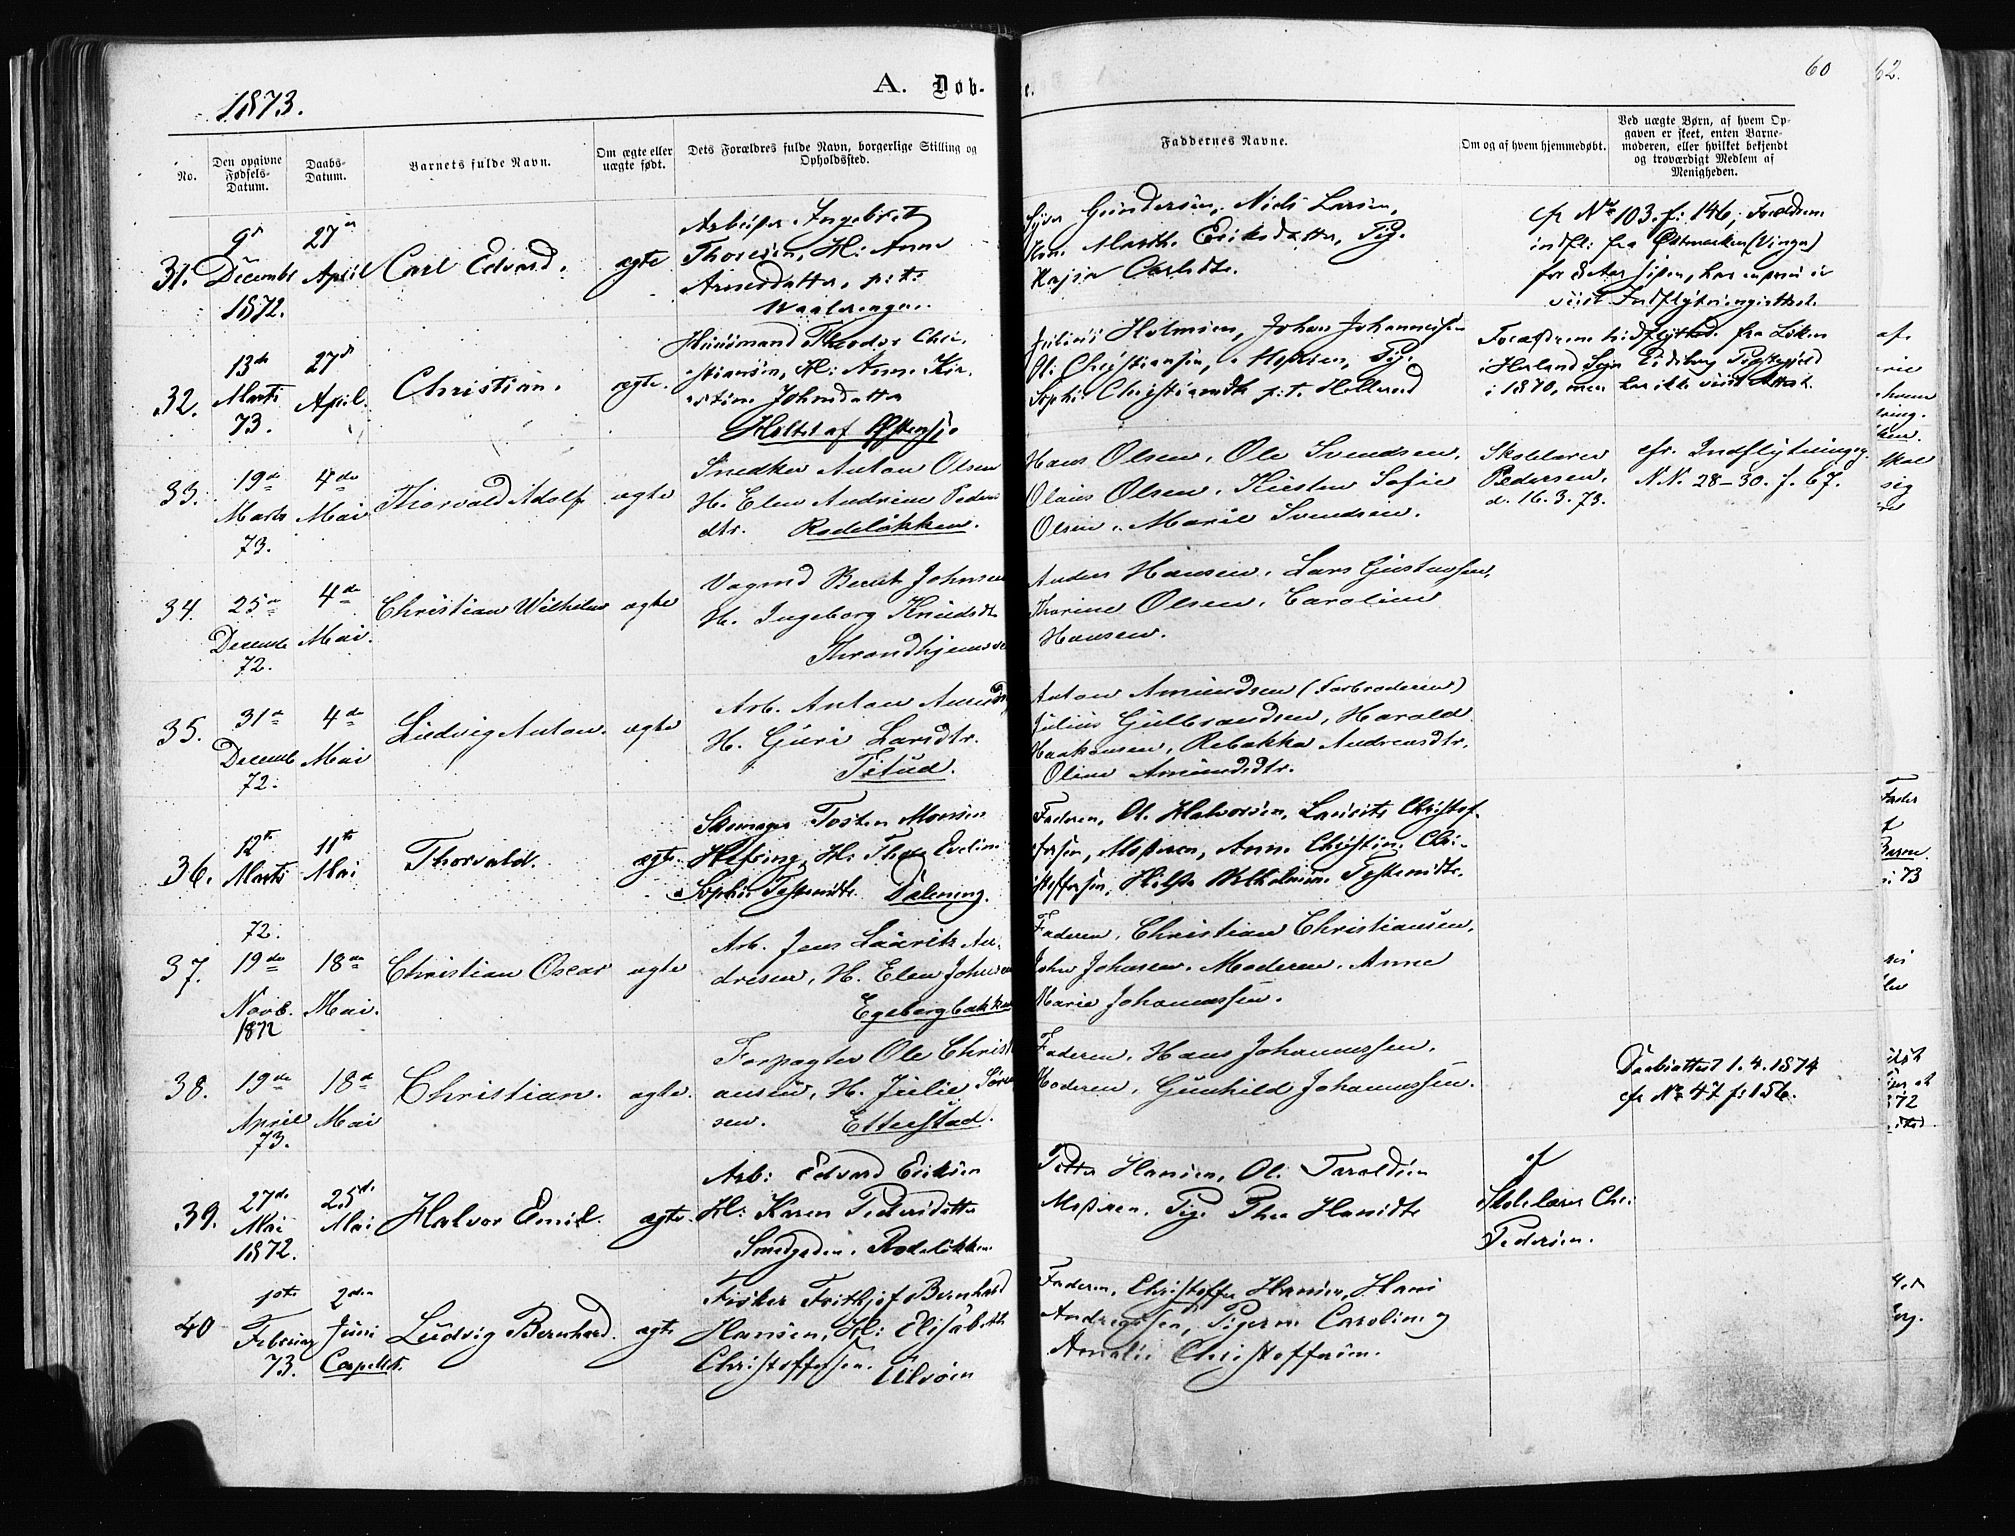 1873.
A. Døb-
e.
60
62.
No.
Den opgivne Fødsels-Datum.
Daabs-Datum.
Barnets fulde Navn.
Om ægte eller uægte født.
Dets Forældres fulde Navn, borgerlige Stilling og Opholdssted.
Faddernes Navne.
Om og af hvem hjemmedøbt.
Ved uægte Børn, af hvem Opgaven er skeet, enten Barnemoderen, eller hvilket bekjendt og troværdigt Medlem af Menigheden.
31.
9de Decembr 1872.
27de April
Carl Edvard.
ægte
Arbeider Ingebret
Thoresen, H: Anne
Arnesdatter, p:t:
Vaalerengen.
Gundersen, Niels Larsen,
Marth. Eriksdatter, Pig.
Kajsa Carlsdtr.
cfr No 103. f: 146, Forældrene
indfl: fra Østmarken (Vinger)
for 8 Aar siden, har
veist Indflytningsattest.
32.
13de Marts 73.
27de April.
Christian.
ægte.
Huusmand Theodor Chri-
stiansen, H: Anne Kir-
stine Johnsdatter
Holtet af Østensjø
Julius Holmsen, Johan Johannesen
Ol: Christiansen, Modren, Pig.
Sophi Christiansdtr p:t. Hellerud
Forældrene indflyttede fra Løken
i Herland Sogn Eidsberg Prestegjeld
i 1870, men har ikke veist Attest.
33.
19de Marts 73.
4de Mai
Thorvald Adolf
ægte
Snedker Anton Olsen
H. Elen Andrine Peders
dtr. Rodeløkken.
Hans Olsen, Ole Svendsen,
Olaus Olsen, Kirsten Sofie
Olsen, Marie Svendsen.
Skolelærer
Pedersen,
d. 16. 3. 73.
cfr. Indflytningsg.
N.N. 28-30. f. 67.
34.
25de Decembr 72.
4de Mai.
Christian Wilhelm
ægte
Vognmd Bernt Johnsen
H. Ingeborg Knudsdtr
Throndhjemsvei
Anders Hansen, Lars Gustavsen,
Karine Olsen, Caroline
Hansen.
35.
31de Decemb 72.
4de Mai
Ludvig Anton.
ægte
Arb. Anton Amunds
H. Guri Larsdtr.
Tetud.
Anton Amundsen (Farbroderen)
Julius Gulbrandsen, Harald
Haakonsen, Rebekka Andreasdtr,
Oline Amundsdtr.
36.
12te Marts
11te Mai
Thorvald.
ægte.
Skomager Tosten Monsen
H: Thea Eveline
Sophie Tostensdtr. Dælening.
Faderen, Ol. Halvorsen, Laurits Christof-
fersen, Moderen, Anne Christine Chri-
stoffersen, Wilhelmine Tostensdtr.
37.
72.
19de Novb. 1872
18de Mai.
Christian Oscar
ægte
Arb. Jens Lauritz An-
dresen, H. Elen Johnsen
Egebergbakken
Faderen, Christian Christiansen,
John Johnsen. Moderen, Anne
Marie Johannessen.
38.
19de April 73.
18de Mai
Christian.
ægte.
Forpagter Ole Christi
ansen, H. Julie Sören
sen. Etterstad.
Faderen, Hans Johannessen,
Moderen, Gunhild Johannessen.
Daabsattest 1. 4. 1874
cfr No 47 f: 156.
39.
27de Mai 1872.
25de Mai
Halvor Emil.
ægte.
Arb: Edvard Eriksen
H: Karen Pedersdatter
Smedgaden, Rodeløkken
Petter Hansen, Ol: Taraldsen
Moderen, Pige Thea Hansdtr
af
Skolelærer Chr.
Pedersen.
40
1ste Februar 73.
2den Juni
Capellet.
Ludvig Bernhard.
ægte
Fisker Frithjof Bernhard
Hansen, H: Elisabeth
Christoffersen. Ulvøen
Faderen, Christoffer Hansen, Hans
Andreassen, Pigerne Caroline og
Amalie Christoffersen.